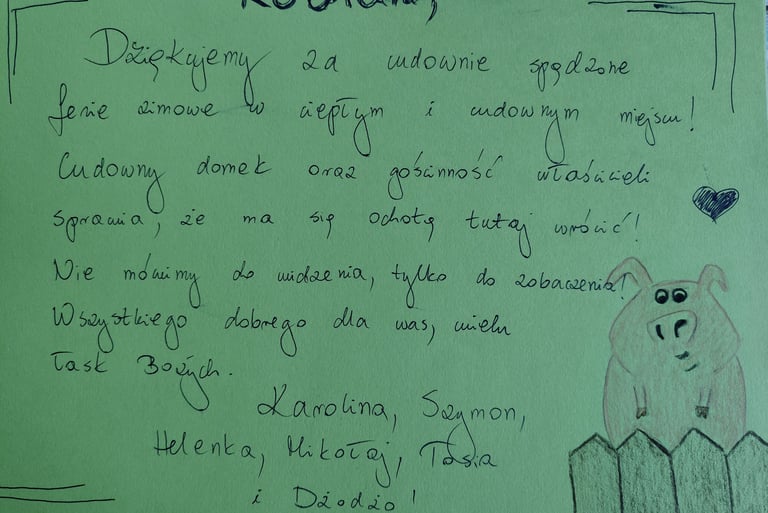 Kochani,
Dziękujemy za cudownie spędzone
ferie zimowe w ciepłym i cudownym miejscu!
Cudowny domek oraz gościnność właścicieli
sprawia, że ma się ochotę tutaj wrócić!
Nie mówimy do widzenia, tylko do zobaczenia!
Wszystkiego dobrego dla was, wielu
łask Bożych.
Karolina, Szymon,
Helenka, Mikołaj, Tosia
i Dżodżo!